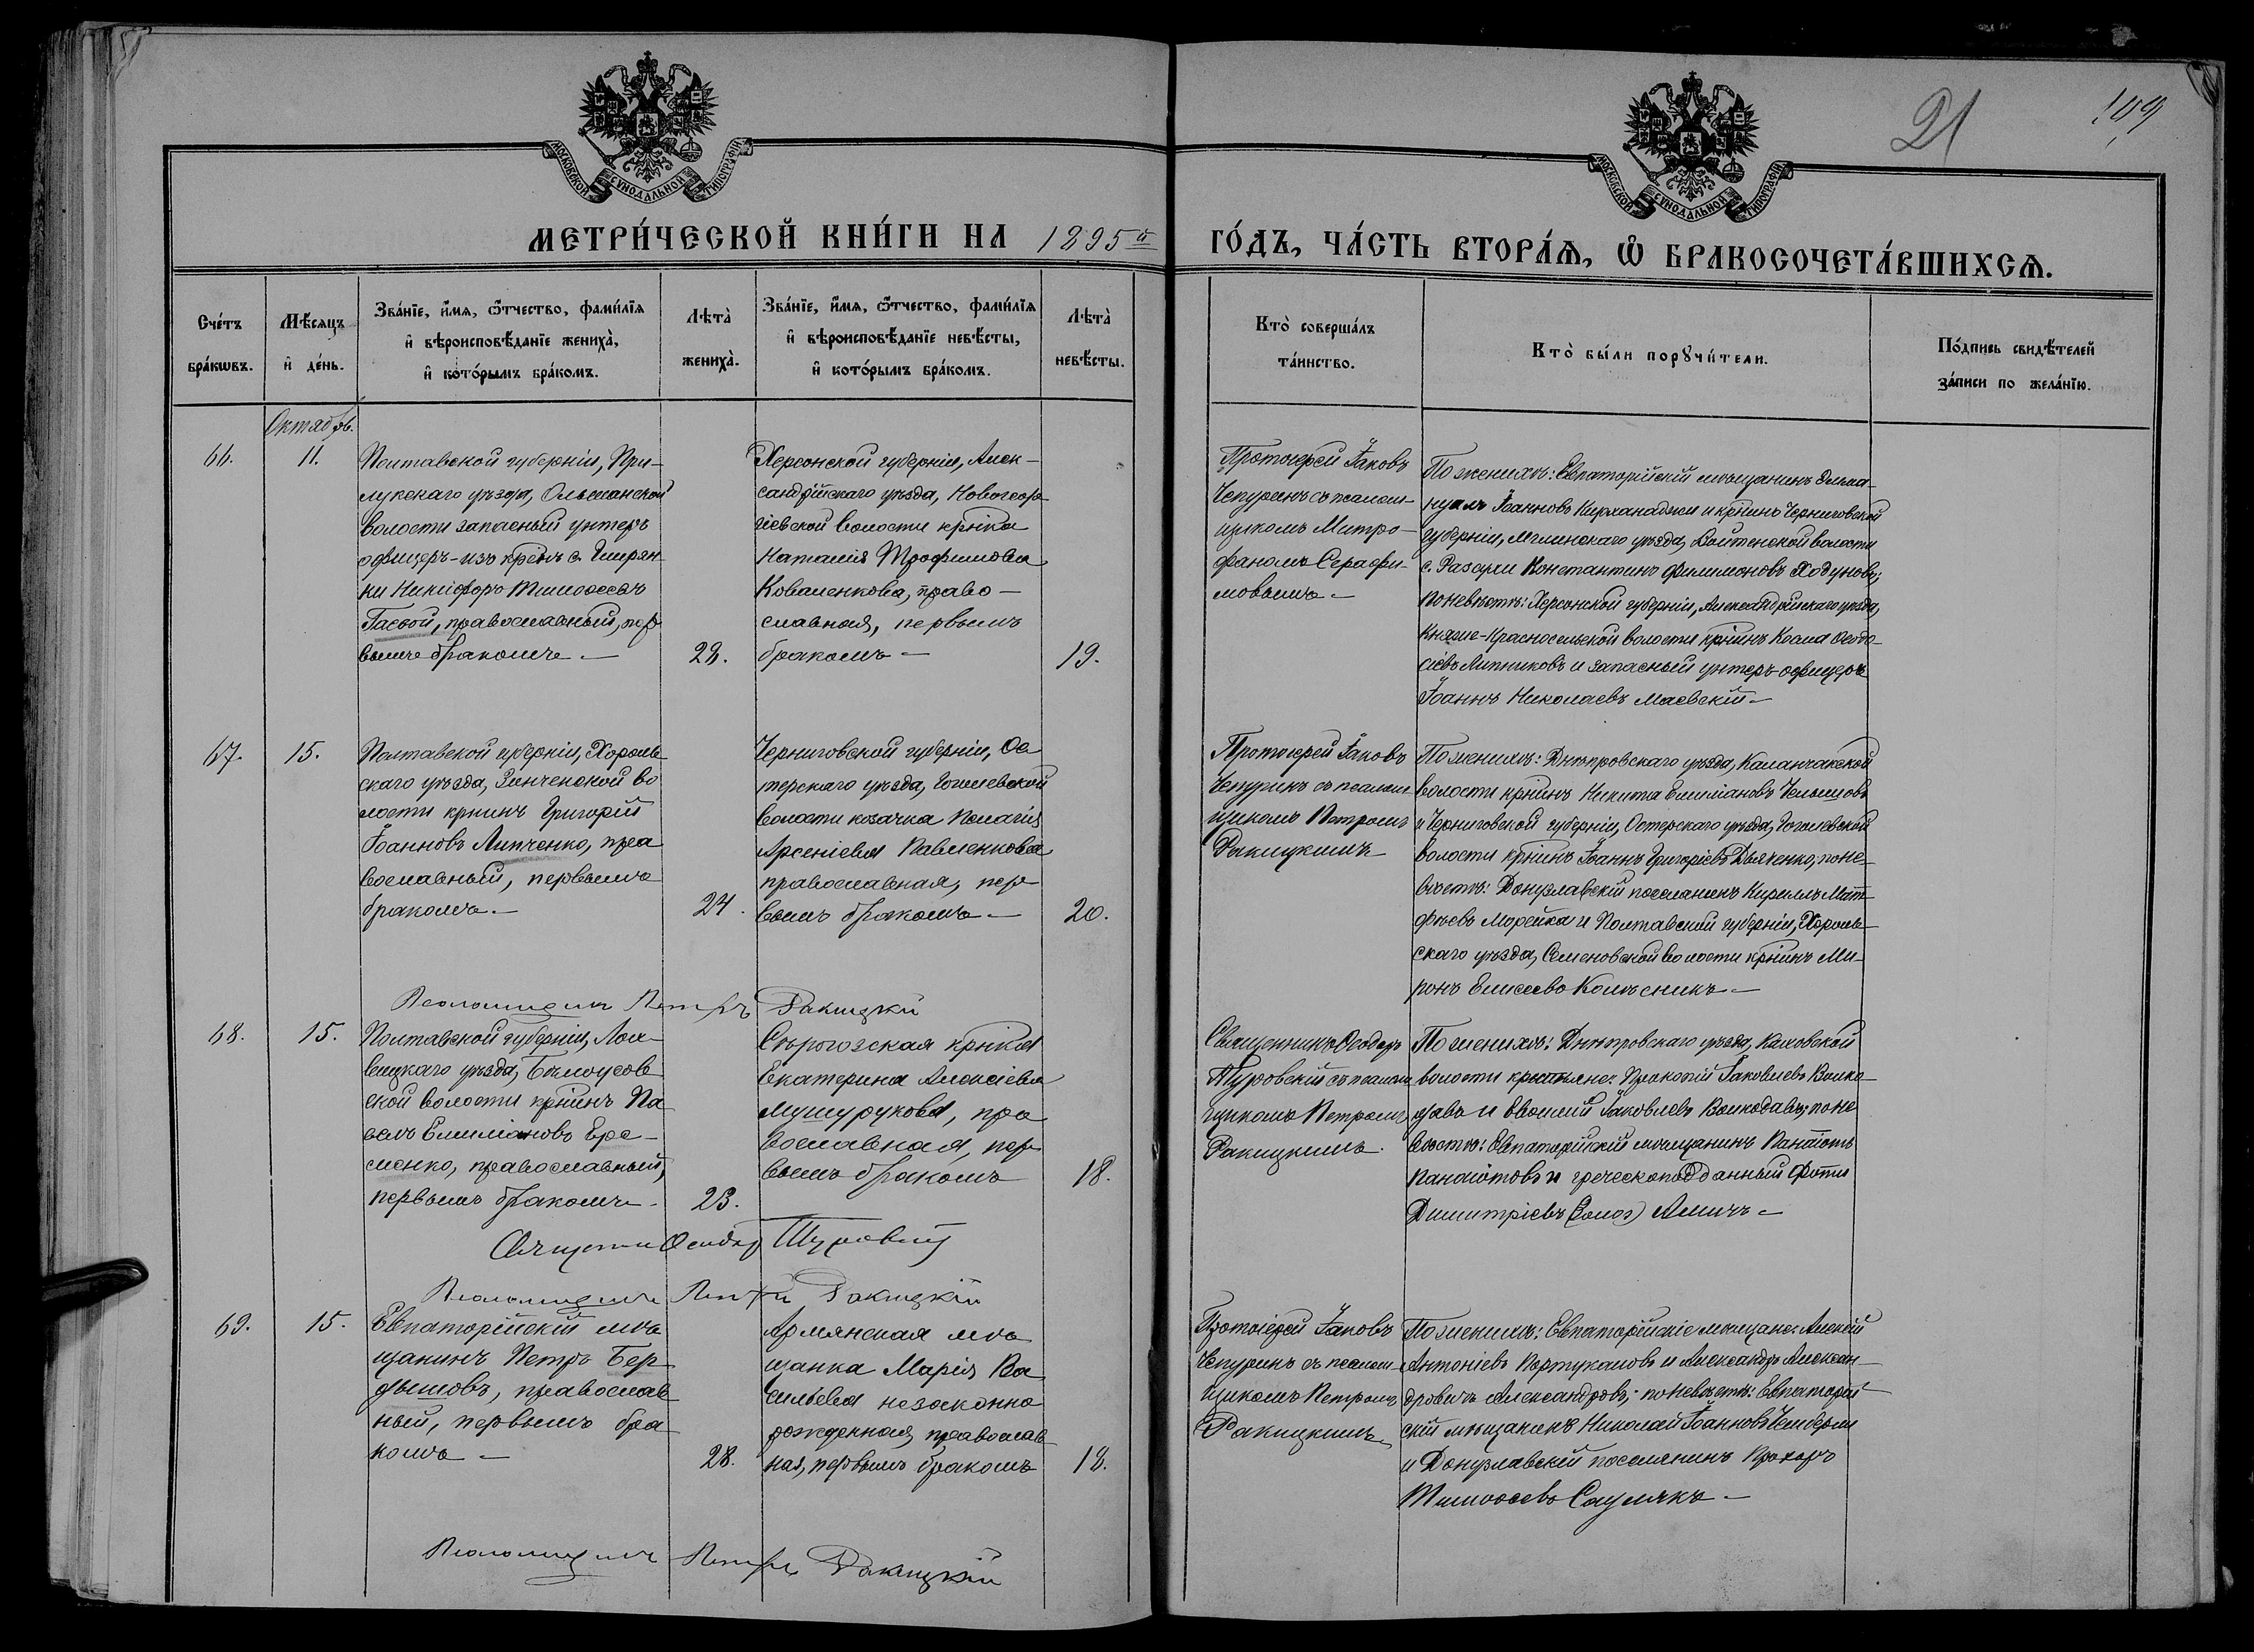 21
199
МОСКОВСКОЙ СУНОДАЛЬНОЙ ТИПОГРАФІИ
МОСКОВСКОЙ СУНОДАЛЬНОЙ ТИПОГРАФІИ
МЕТРИ́ЧЕСКОЙ КНИ́ГИ НА 1895 й
ГО́ДЪ, ЧА́СТЬ ВТОРА́Ѧ, Ѽ БРАКОСОЧЕТА́ВШИХСѦ.
Сче́тъ бра́кѡвъ.
Мѣ́сяцъ и҆ де́нь.
Зва́нїе, и҆́мѧ, ѻ҆́тчество, фами́лїѧ
и҆ вѣроисповѣ́данїе жениха̀,
и҆ кото́рымъ бра́комъ.
Лѣта̀ жениха̀.
Зва́нїе, и҆́мѧ, ѻ҆́тчество, фами́лїѧ
и҆ вѣроисповѣ́данїе невѣ́сты,
и҆ кото́рымъ бра́комъ.
Лѣта̀ невѣ́сты.
Кто̀ соверша́лъ
та́инство.
Кто̀ бы́ли порꙋчи́тели.
По́дпись свидѣ́телей
за́писи по жела́нїю.
Октябрь.
66.
11.
Полтавской губерніи, При-
лукскаго уѣзда, Ольшанской
волости запасный унтеръ
офицеръ-изъ крѣнъ с.
Никифоръ Тимоѳеевъ
Гасвой, православный, пер
вымъ бракомъ —
28.
Херсонской губерніи, Алек-
сандрійскаго уѣзда, Новогеор
гіевской волости крнка
Наталія Трофимова
Коваленкова, право-
славная, первымъ
бракомъ —
19.
Протоіерей Іаковъ
Чепуринъ съ псалом-
щикомъ Митро-
фаномъ Серафи-
мовымъ —
По женихѣ: Евпаторійскій мѣщанинъ Эмма-
нуилъ Іоанновъ Кирханаджи и крнинъ Черниговской
губерніи, Мглинскаго уѣзда, волости
с. Разсухи Константинъ Филимоновъ Ходуновъ;
по невѣстѣ: Херсонской губерніи, Александрійскаго уѣзда,
Княже-Красносельской волости крнинъ Косма Ѳеодо-
сіевъ Липниковъ и запасный унтеръ-офицеръ
Іоаннъ Николаевъ Маевскій —
67.
15.
Полтавской губерніи, Хороль
скаго уѣзда, Зинченской во
лости крнинъ Григорій
Іоанновъ Липченко, пра
вославный, первымъ
бракомъ. —
24.
Черниговской губерніи, Ос
терскаго уѣзда, Гоголевской
волости козачка Пелагія
Арсеніева Павленкова
православная, пер
вымъ бракомъ —
20.
Протоіерей Іаковъ
Чепуринъ съ псалом
щикомъ Петромъ
Ракицкимъ
По женихѣ: Днѣпровскаго уѣзда, Каланчакской
волости крнинъ Никита Емиліановъ Челышовъ
и Черниговской губерніи, Остерскаго уѣзда, Гоголевской
волости крнинъ Іоаннъ Григоріевъ Дьяченко; по не-
вѣстѣ: Донузлавскій поселянинъ Кириллъ Мат-
фѣевъ Морейка и Полтавской губерніи, Хороль-
скаго уѣзда, Семеновской волости крнинъ Ми-
ронъ Елисеевъ Колѣсникъ —
Псаломщикъ Петръ Ракицкій
68.
15.
Полтавской губерніи, Лох-
вицкаго уѣзда, Бѣлоусов
ской волости крнинъ Па
велъ Емиліановъ Ере-
менко, православный,
первымъ бракомъ.
23.
Сѣрогозская крнка
Екатерина Алексіева
Мушурукова, пра
вославная, пер
вымъ бракомъ
18.
Священникъ Ѳеодоръ
Туровскій съ псалом
щикомъ Петромъ
Ракицкимъ.
По женихѣ: Днѣпровскаго уѣзда, Каховской
волости крестьяне: Прокопій Іаковлевъ Волко-
давъ и Евѳимій Іаковлевъ Волкодавъ; по не
вѣстѣ: Евпаторійскій мѣщанинъ Панаіотъ
Панаіотовъ и греческоподданный Фоти
Димитріевъ Алмич —
Священникъ Ѳеодоръ Туровскій
Псаломщикъ Петръ Ракицкій
69.
15.
Евпаторійскій мѣ
щанинъ Петръ Бер
дышовъ, православ
ный, первымъ бра
комъ —
28.
Армянская мѣ
щанка Марія Ва
сильева незаконно
рожденная, православ
ная, первымъ бракомъ
18.
Протоіерей Іаковъ
Чепуринъ съ псалом
щикомъ Петромъ
Ракицкимъ
По женихѣ: Евпаторійскіе мѣщане: Алексій
Антоніевъ Портукаловъ и Александръ Алексан-
дровичъ Александровъ; по невѣстѣ: Евпаторій
скій мѣщанинъ Николай Іоанновъ Чемберли
и Донузлавскій поселянинъ Прохоръ
Тимоѳеевъ Саулякъ —
Псаломщикъ Петръ Ракицкій